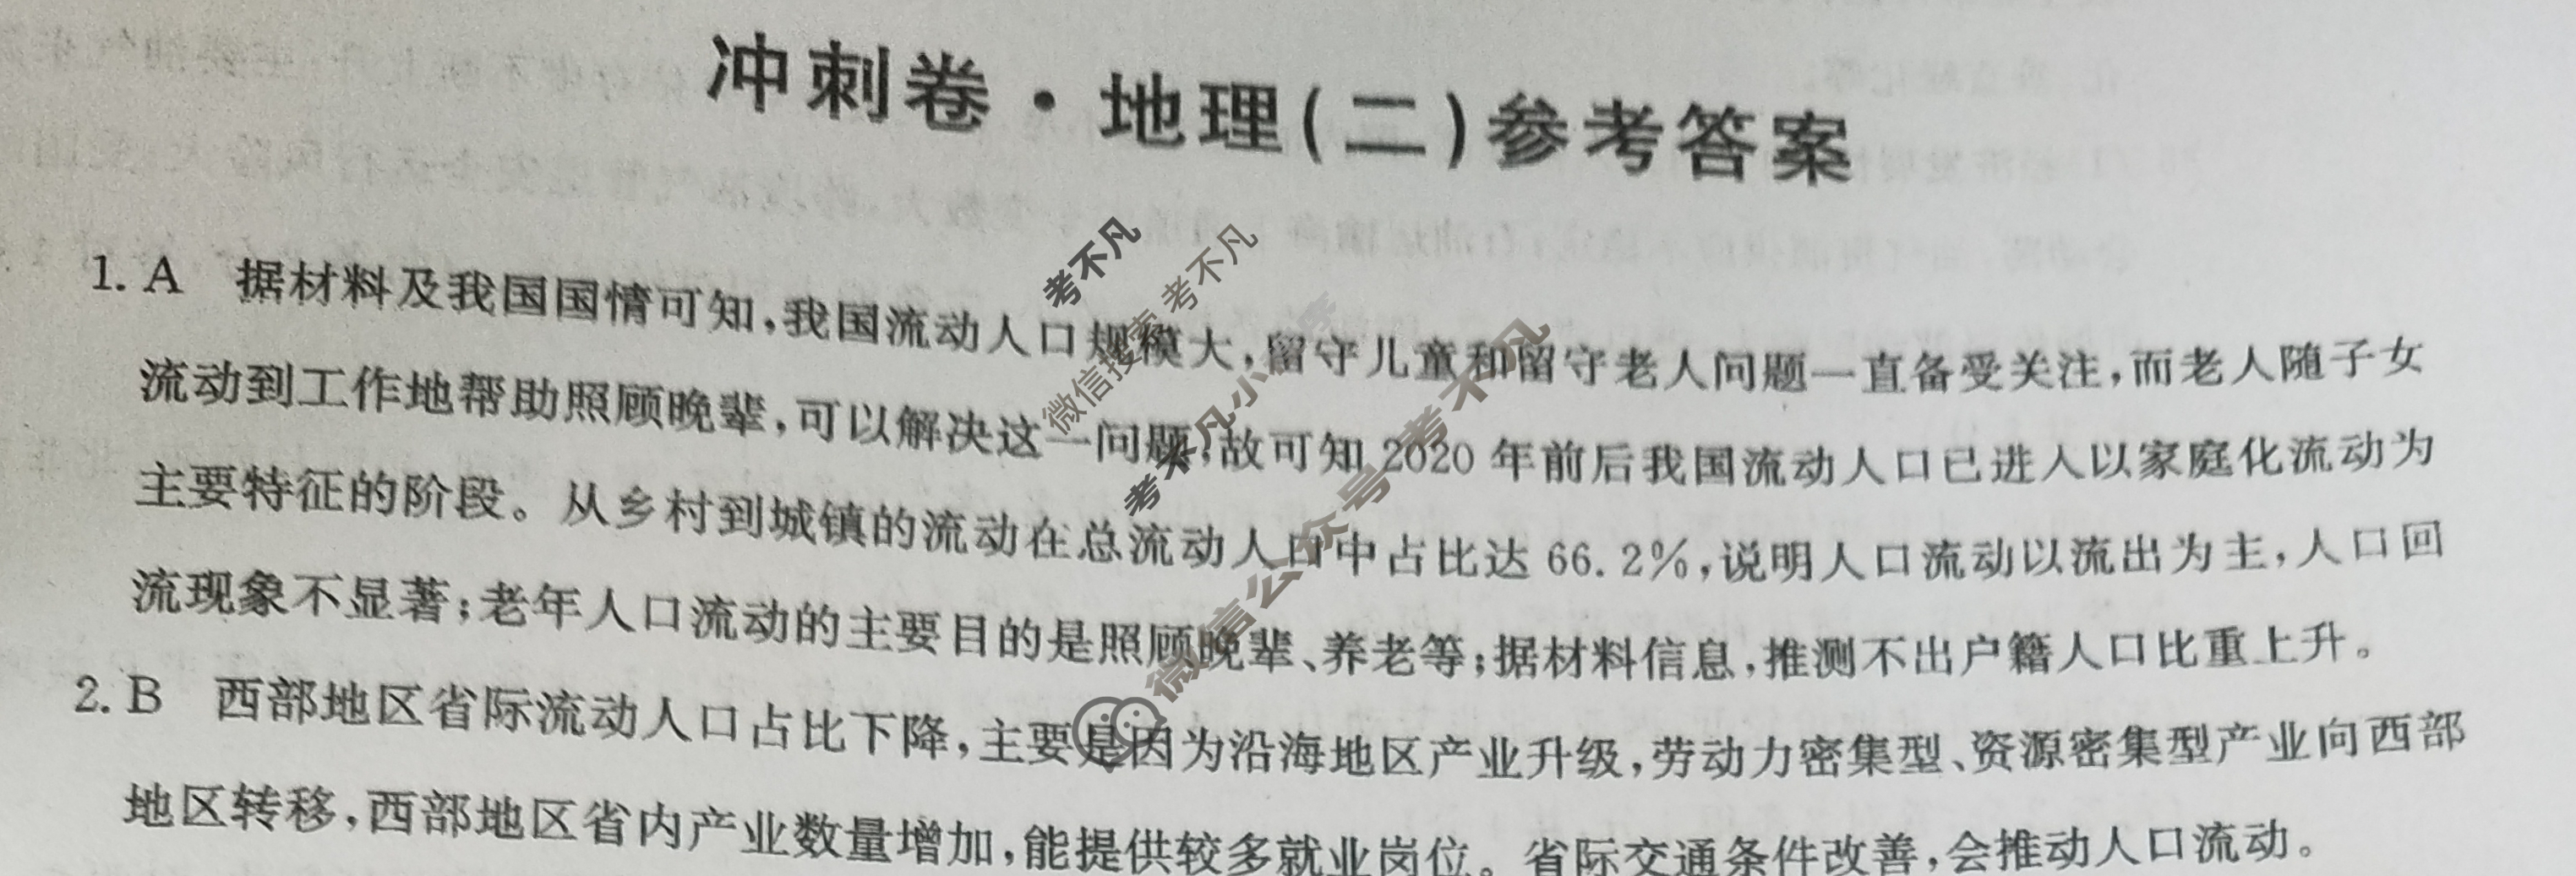 冲刺卷·地理(二)参考答案
1. A 据材料及我国国情可知,我国流动人口规模大,留守儿童和留守老人问题一直备受关注,而老人随子女
流动到工作地帮助照顾晚辈,可以解决这一问题,故可知 2020 年前后我国流动人口已进入以家庭化流动为
主要特征的阶段。从乡村到城镇的流动在总流动人口中占比达 66.2%,说明人口流动以流出为主,人口回
流现象不显著;老年人口流动的主要目的是照顾晚辈、养老等;据材料信息,推测不出户籍人口比重上升。
2. B 西部地区省际流动人口占比下降,主要是因为沿海地区产业升级,劳动力密集型、资源密集型产业向西部
地区转移,西部地区省内产业数量增加,能提供较多就业岗位。省际交通条件改善,会推动人口流动。
考不凡
微信搜索 考不凡
考不凡小
微信公众号 考不凡